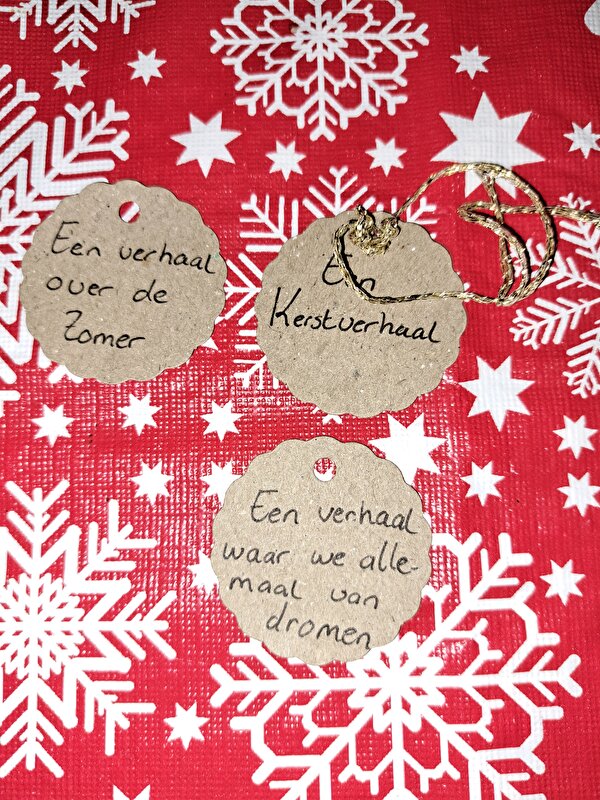 Een verhaal
over de
Zomer
Een
Kerstverhaal
Een verhaal
waar we alle-
maal van
dromen